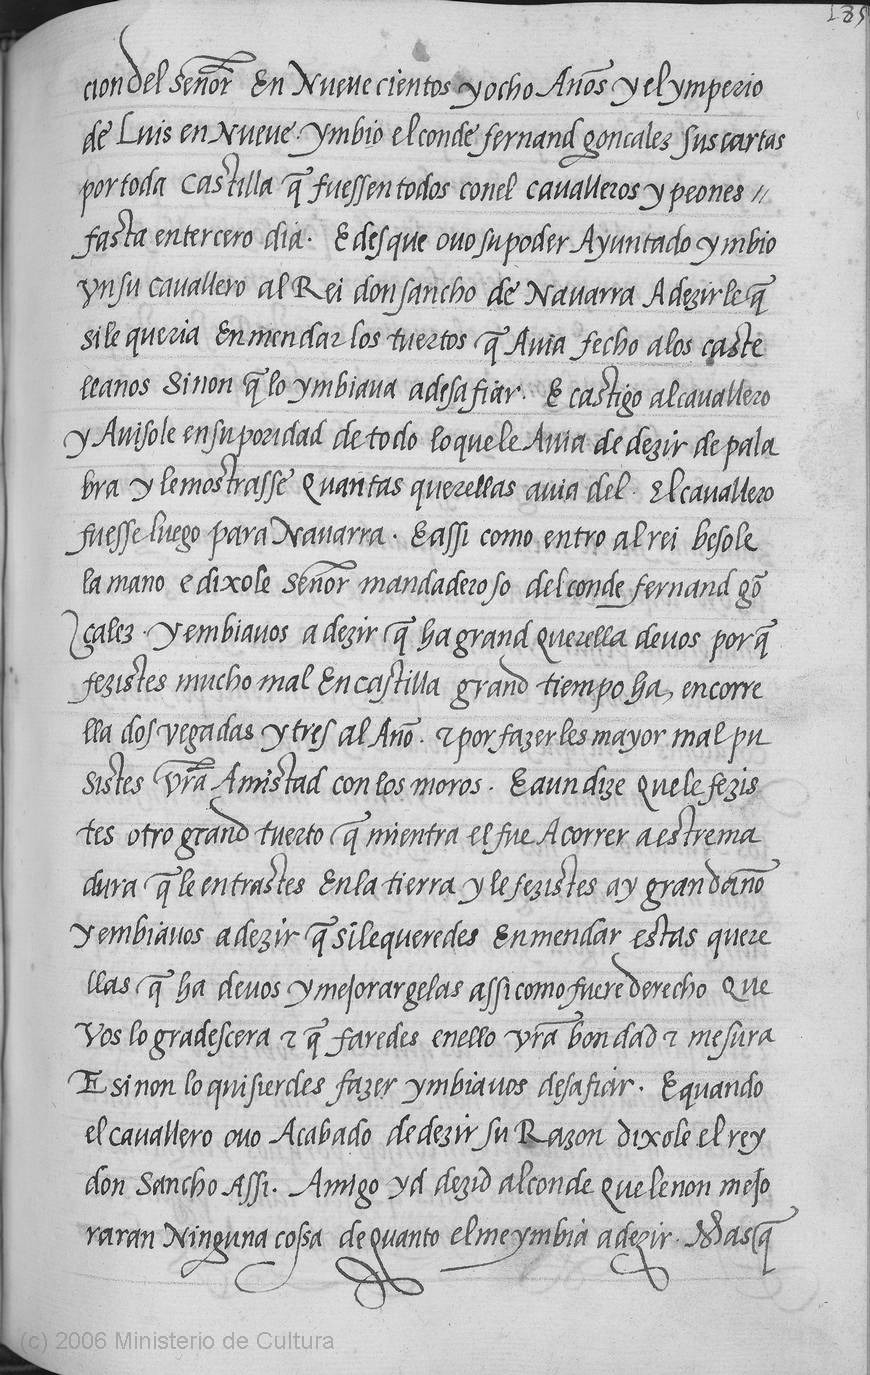 185
cion del señor En Nueve cientos y ocho Años y el ymperio
de Luis en Nueve. ymbio el conde fernand goncalez sus cartas
por toda Castilla q̃ fuessen todos con el cavalleros y peones //
fasta en tercero dia. E des que ovo su poder Ayuntado ymbio
vn su cavallero al Rei don sancho de Navarra A dezirle q̃
si le queria Enmendar los tuertos q̃ Avia fecho a los caste
llanos Sinon q̃ lo ymbiava a desafiar. E castigo al cavallero
y Avisole en su poridad de todo lo que le Avia de dezir de pala
bra y le mostrasse Quantas querellas avia del. El cavallero
fuesse luego para Navarra. E assi como entro al rei besole
la mano e dixole Señor mandadero so del conde fernand gõ
çalez. y embiavos a dezir q̃ ha grand Querella de vos por q̃
fezistes mucho mal En castilla grand tiempo ha, en corre
lla dos vegadas y tres al Año. & por fazerles mayor mal pu
sistes vr̃a Amistad con los moros. E aun dize Que le fezis
tes otro grand tuerto q̃ mientra el fue A correr a estrema
dura q̃ le entrastes En la tierra y le fezistes ay grand daño
y embiavos a dezir q̃ si le queredes Enmendar estas quere
llas q̃ ha de vos y mejorargelas assi como fuere derecho Que
Vos lo gradescera & q̃ faredes en ello vr̃a bondad & mesura
E si non lo quisierdes fazer ymbiavos desafiar. E quando
el cavallero ovo Acabado de dezir su Razon dixole el rey
don Sancho Assi. Amigo yd dezid al conde Que le non mejo
raran Ninguna cossa de quanto el me ymbia a dezir. Mas q̃
(c) 2006 Ministerio de Cultura